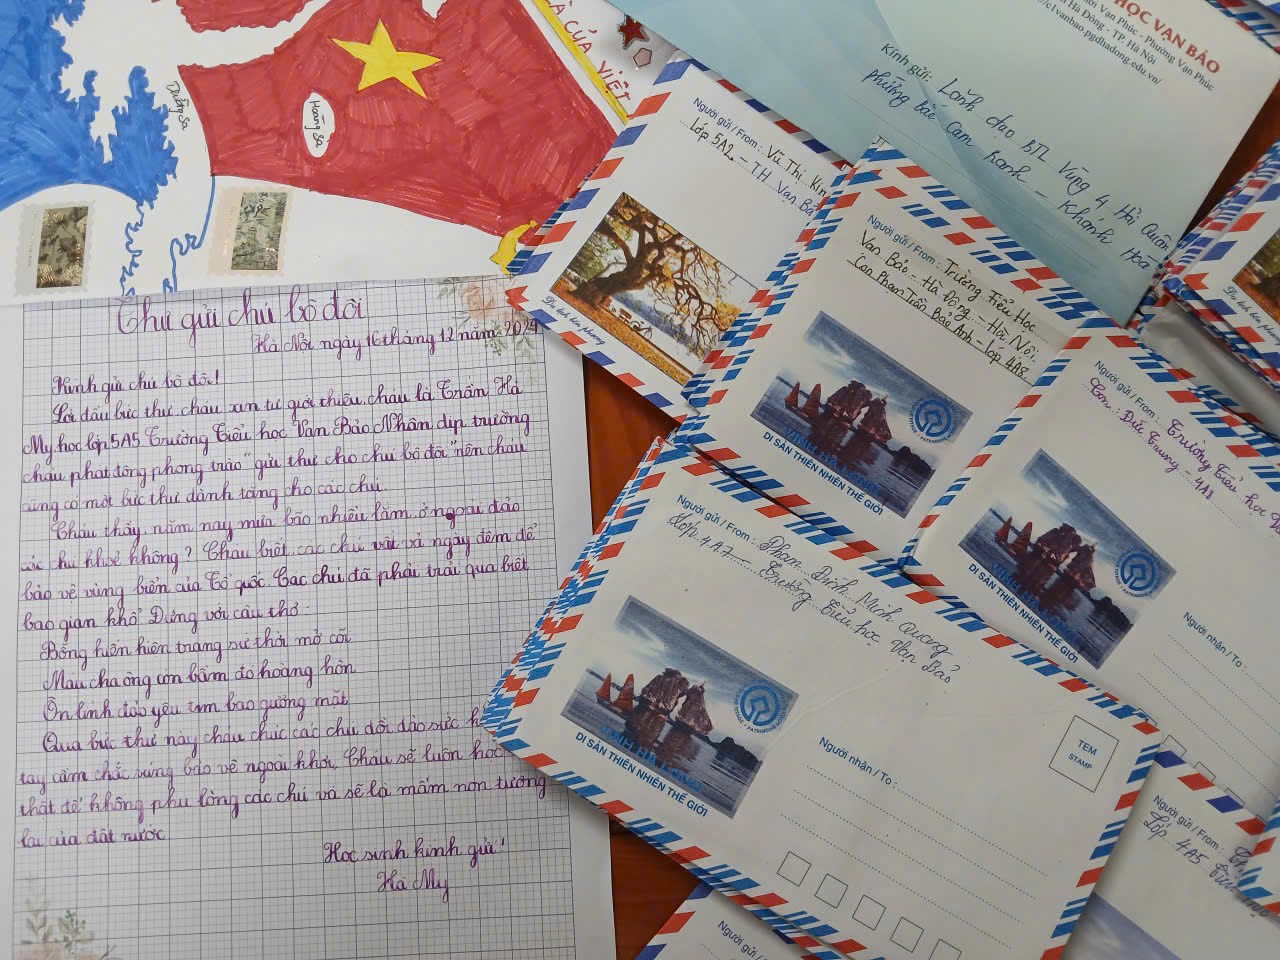 À CỦA VIỆT
Trường Sa
Hoàng Sa
HỌC VẠN BẢO
Vạn Phúc - Phường Vạn Phúc
Hà Đông - TP. Hà Nội
c1vanbao.pgdhadong.edu.vn/
Kính gửi: Lãnh đạo BTL Vùng 4 Hải Quân
phòng bắc Cam Ranh - Khánh Hoà
Người gửi / From: Vũ Thị Kim
Lớp 5A2 - T.H Vạn Bả
Người gửi / From: Trường Tiểu Học
Vạn Bảo - Hà Đông - Hà Nội.
Con Phạm Trần Bảo Anh - lớp 4A8
VỊNH HẠ LONG
DI SẢN THIÊN NHIÊN THẾ GIỚI
Người gửi / From: Trường Tiểu học
Con: Đức Trung - 4A8
VỊNH HẠ LONG
DI SẢN THIÊN NHIÊN THẾ GIỚI
Người nhận / To:
Người gửi / From: Phạm Đình Minh Quang
Lớp 4A7 - Trường Tiểu học Vạn Bảo
VỊNH HẠ LONG
DI SẢN THIÊN NHIÊN THẾ GIỚI
Người nhận / To:
TEM
STAMP
Người gửi / From:
Lớp 4A5
Người gửi / From:
Thư gửi chú bộ đội
Hà Nội ngày 16 tháng 12 năm 2024
Kính gửi chú bộ đội!
Lời đầu bức thư cháu xin tự giới thiệu, cháu là Trần Hà
My, học lớp 5A5 Trường Tiểu học Vạn Bảo. Nhân dịp trường
cháu phát động phong trào "gửi thư cho chú bộ đội" nên cháu
cũng có một bức thư dành tặng cho các chú
Cháu thấy năm nay mưa bão nhiều lắm, ở ngoài đảo
các chú khoẻ không? Cháu biết các chú vất vả ngày đêm để
bảo vệ vùng biển của Tổ quốc. Các chú đã phải trải qua biết
bao gian khổ. Đúng với câu thơ:
Bổng hiên hiên trang sử thời mở cõi
Máu cha ông còn bầm đỏ hoàng hôn
Ôn linh đảo yêu tim bao gương mặt
Qua bức thư này cháu chúc các chú dồi dào sức
tay cầm chắc súng bảo vệ ngoài khơi. Cháu sẽ luôn học
thật để không phụ lòng các chú và sẽ là mầm non tương
lai của đất nước
Học sinh kính gửi!
Hà My